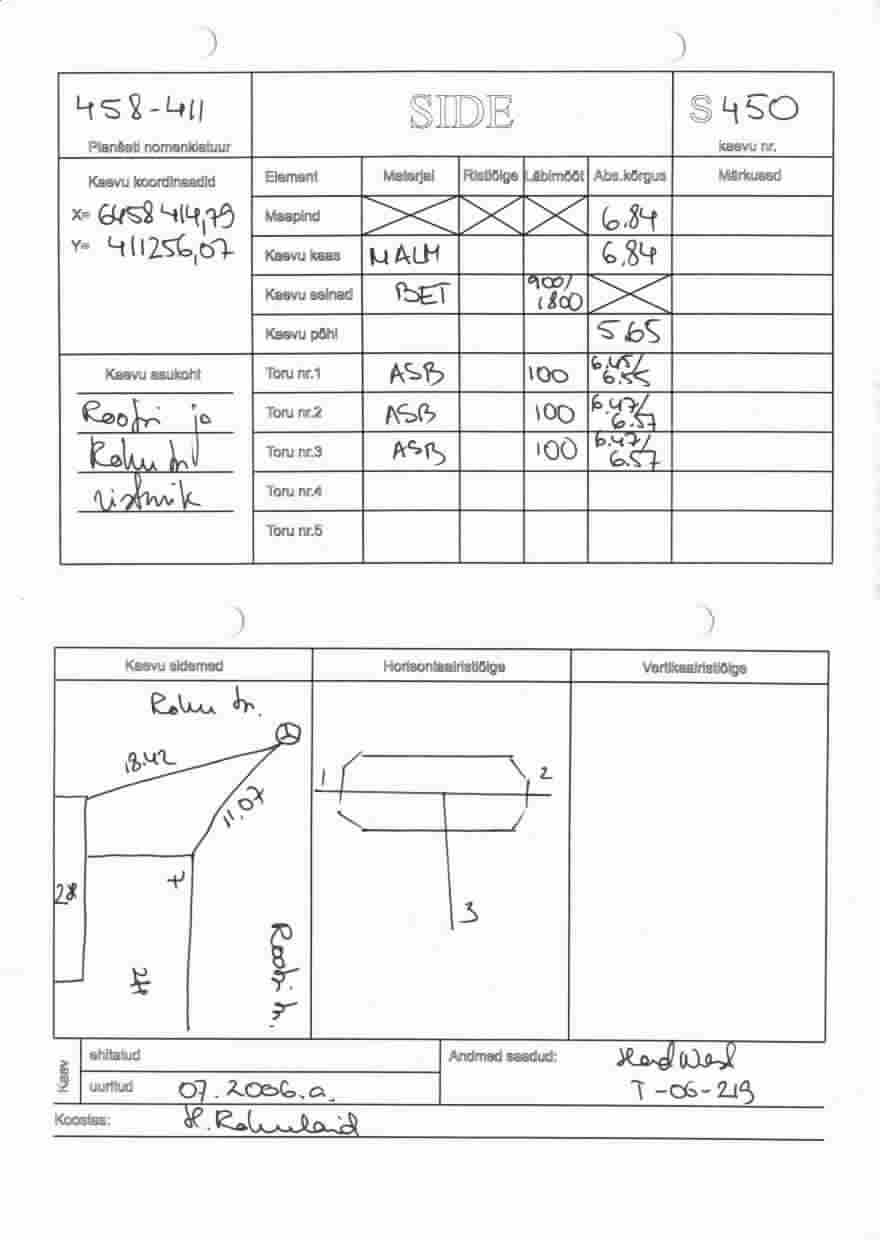 458-411
SIDE
S 450
Planšeti nomenklatuur
kaevu nr.
Kaevu koordinaadid
X= 6458414,79
Y= 411256,07
Element Materjal Ristlõige Läbimõõt Abs.kõrgus Märkused
Maapind 6.84
Kaevu kaas MALM 6.84
Kaevu seinad BET 900/
1800
Kaevu põhi 5.65
Kaevu asukoht
Rootsi ja
Rahu tn
ristmik
Toru nr.1 ASB 100 6.45/
6.55
Toru nr.2 ASB 100 6.47/
6.57
Toru nr.3 ASB 100 6.47/
6.57
Toru nr.4
Toru nr.5
Kaevu sidemed
Horisontaalristlõige
Vertikaalristlõige
Rahu tn.
18.42
11.07
1
2
3
Kaev
ehitatud
uuritud 07.2006.a.
Andmed saadud:
T-06-219
Koostas: H. Rahulaid